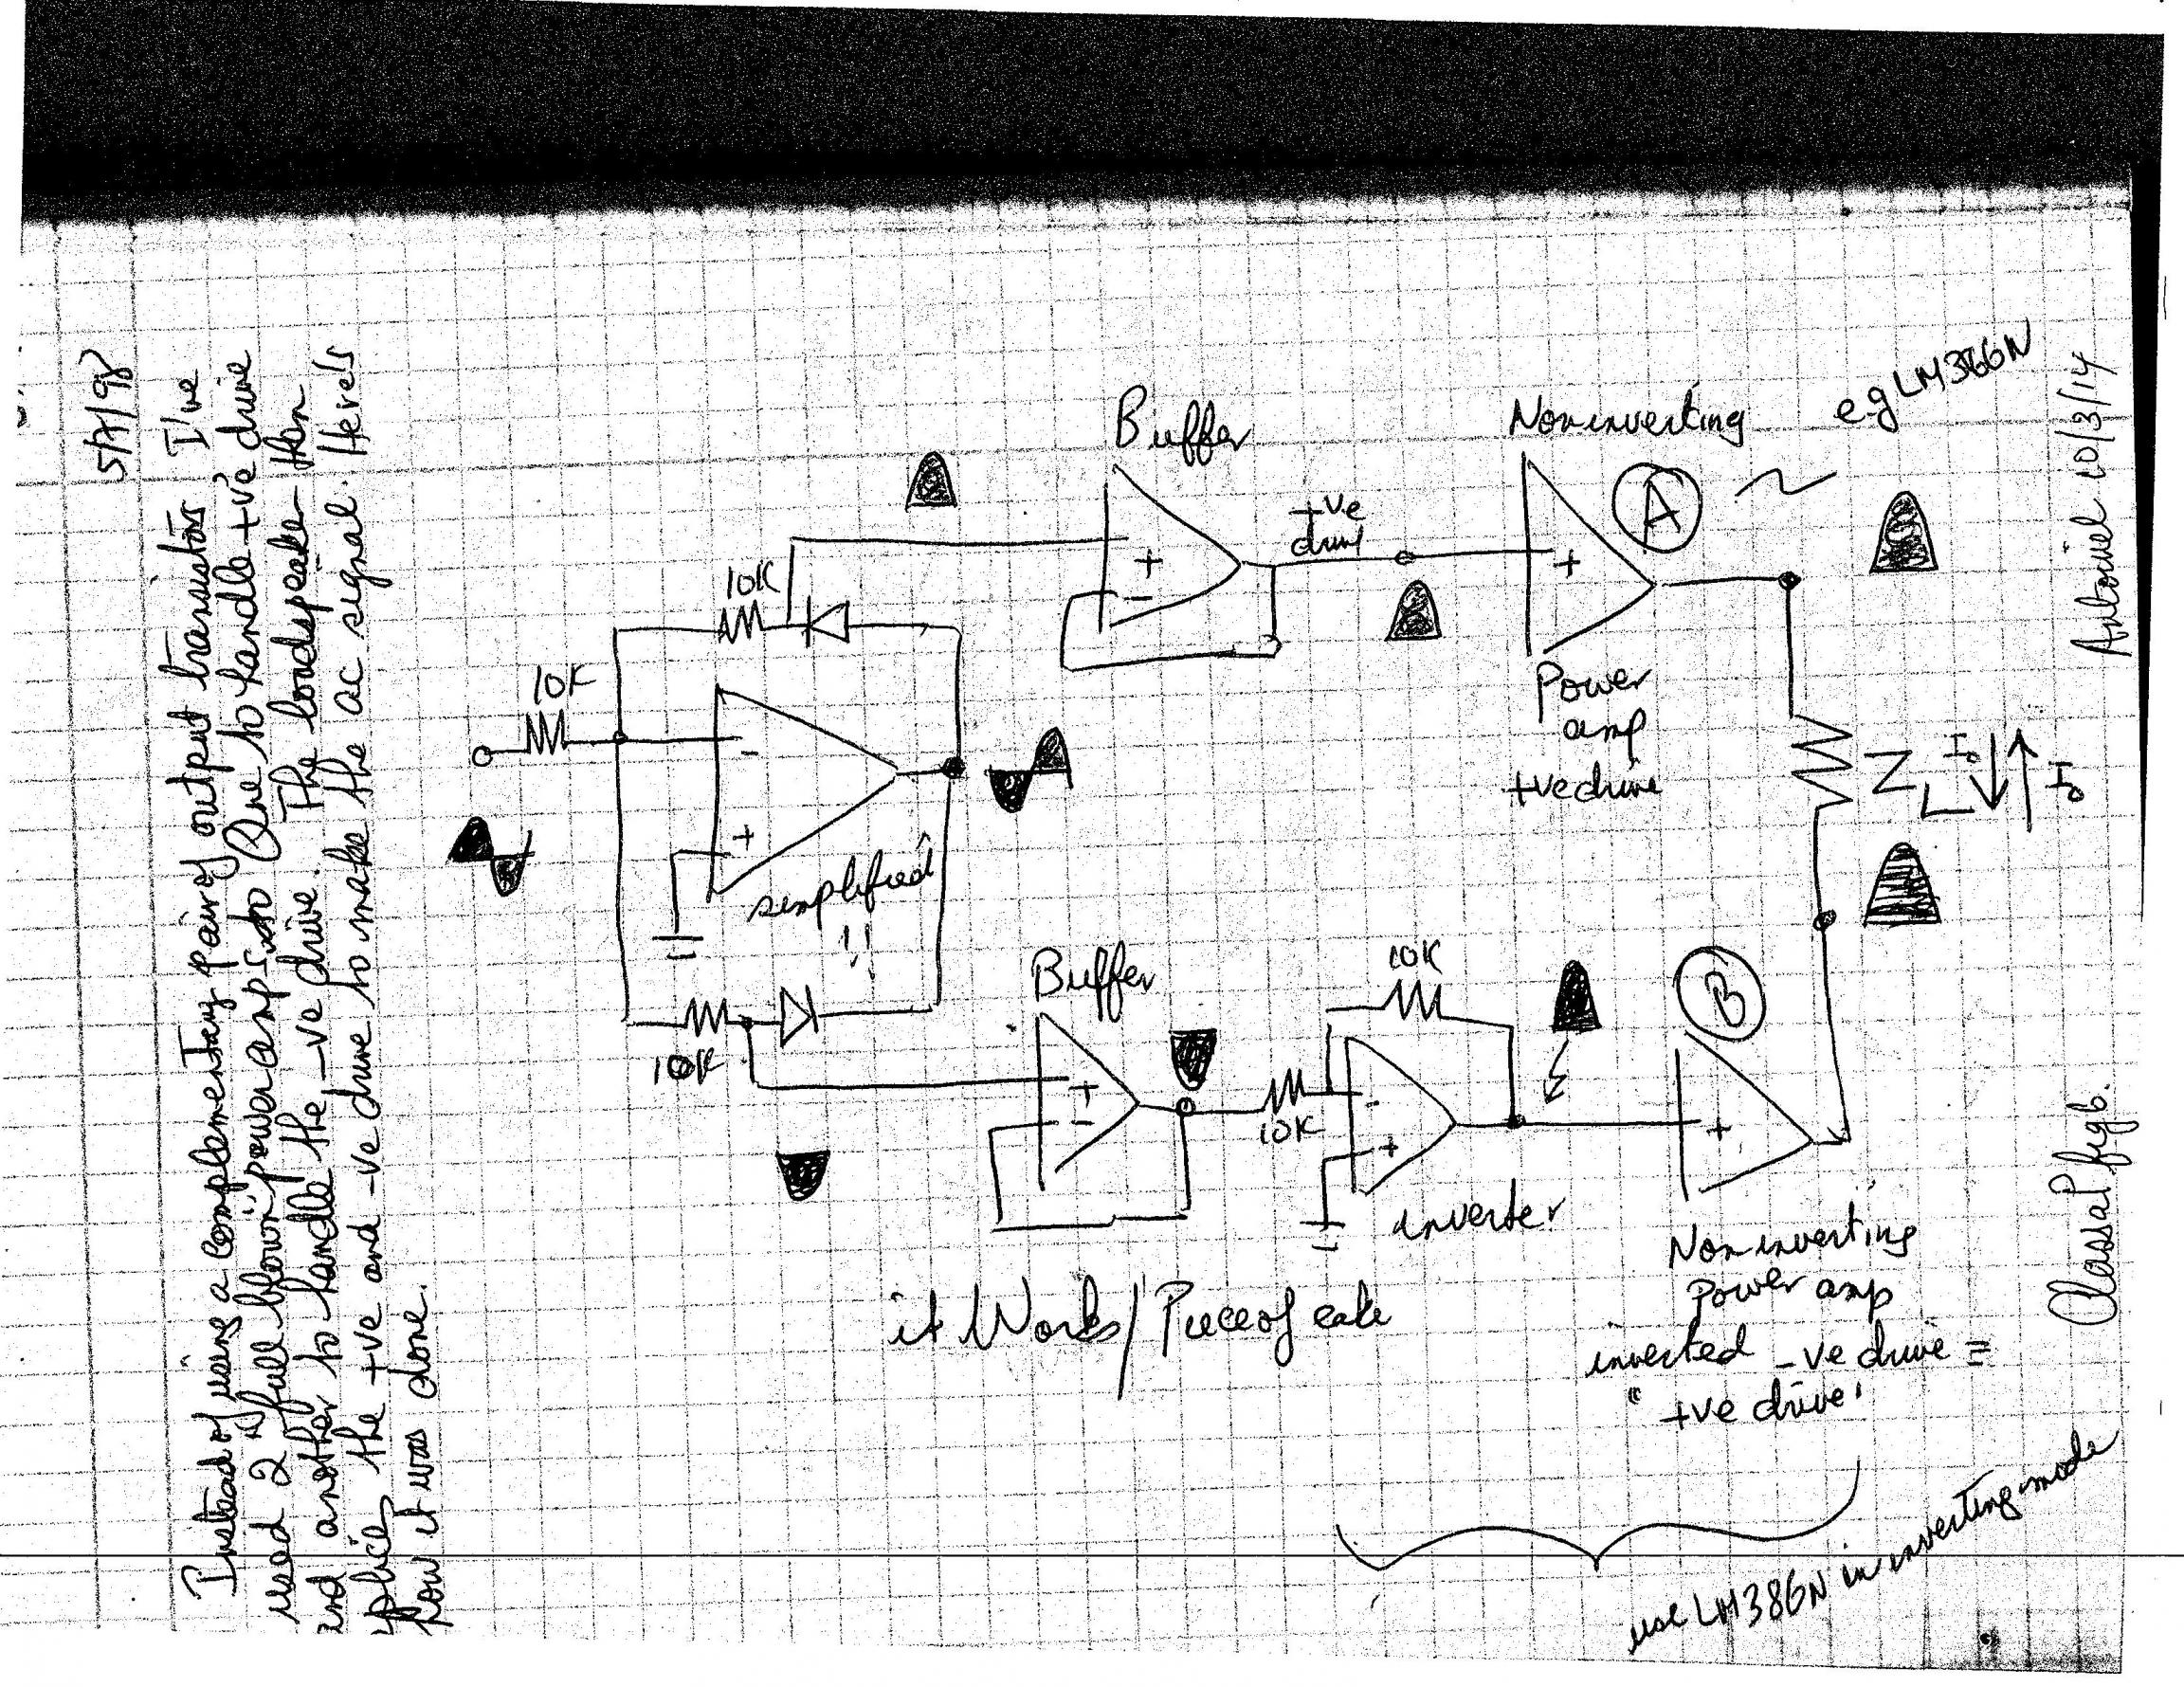 5/7/98
Instead of using a complementary pair of output transistors I've
used 2 "full blown" power amps to One to handle +ve drive
and another to handle the -ve drive. The loudspeaker then
splices the +ve and -ve drive to make the ac signal. Here's
how it was done.
Buffer
Noninverting
eg LM386N
Antoinel 10/3/14
A
+ve
drive
10K
+
-
+
10K
-
+
Power
amp
+ve drive
ZL
Io
Io
simplified
!!
Buffer
10K
B
10K
+
-
10K
-
+
+
inverter
Noninverting
Power amp
inverted -ve drive =
"+ve drive'
it Works / Piece of cake
ClassaP fig6.
use LM386N in inverting mode